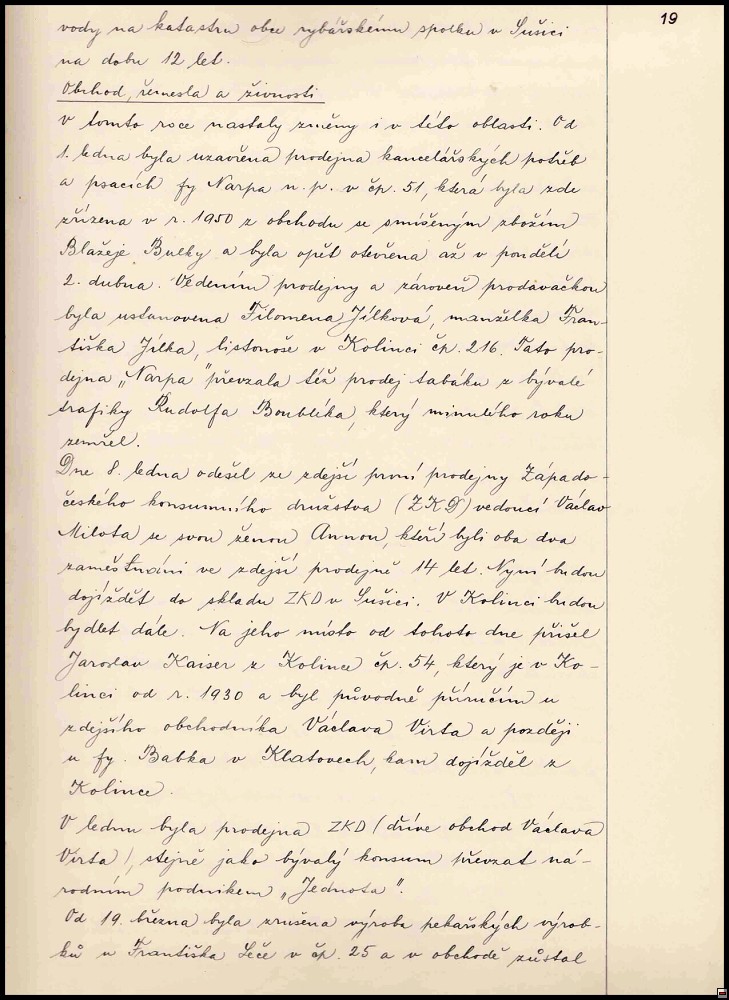 19
vody na katastru obce rybářskému spolku v Sušici
na dobu 12 let.
Obchod, řemesla a živnosti
V tomto roce nastaly změny i v této oblasti. Od
1. ledna byla uzavřena prodejna kancelářských potřeb
a psacích fy Narpa n. p. v čp. 51, která byla zde
zřízena v r. 1950 z obchodu se smíšeným zbožím
Blažeje Bulky a byla opět otevřena až v pondělí
2. dubna. Vedením prodejny a zároveň prodavačkou
byla ustanovena Filomena Jílková, manželka Fran-
tiška Jílka, listonoše v Kolinci čp. 216. Tato pro-
dejna „Narpa" převzala též prodej tabáku z bývalé
trafiky Rudolfa Boublíka, který minulého roku
zemřel.
Dne 8. ledna odešel ze zdejší první prodejny Západo-
českého konsumního družstva (ZKD) vedoucí Václav
Milota se svou ženou Annou, kteří byli oba dva
zaměstnáni ve zdejší prodejně 14 let. Nyní budou
dojíždět do skladu ZKD v Sušici. V Kolinci budou
bydlet dále. Na jeho místo od tohoto dne přišel
Jaroslav Kaiser z Kolince čp. 54, který je v Ko-
linci od r. 1930 a byl původně příručím u
zdejšího obchodníka Václava Virta a později
u fy. Babka v Klatovech, kam dojížděl z
Kolince.
V lednu byla prodejna ZKD (dříve obchod Václava
Virta), stejně jako bývalý konsum převzat ná-
rodním podnikem „Jednota".
Od 19. března byla zrušena výroba pekařských výrob-
ků u Františka Leče v čp. 25 a v obchodě zůstal